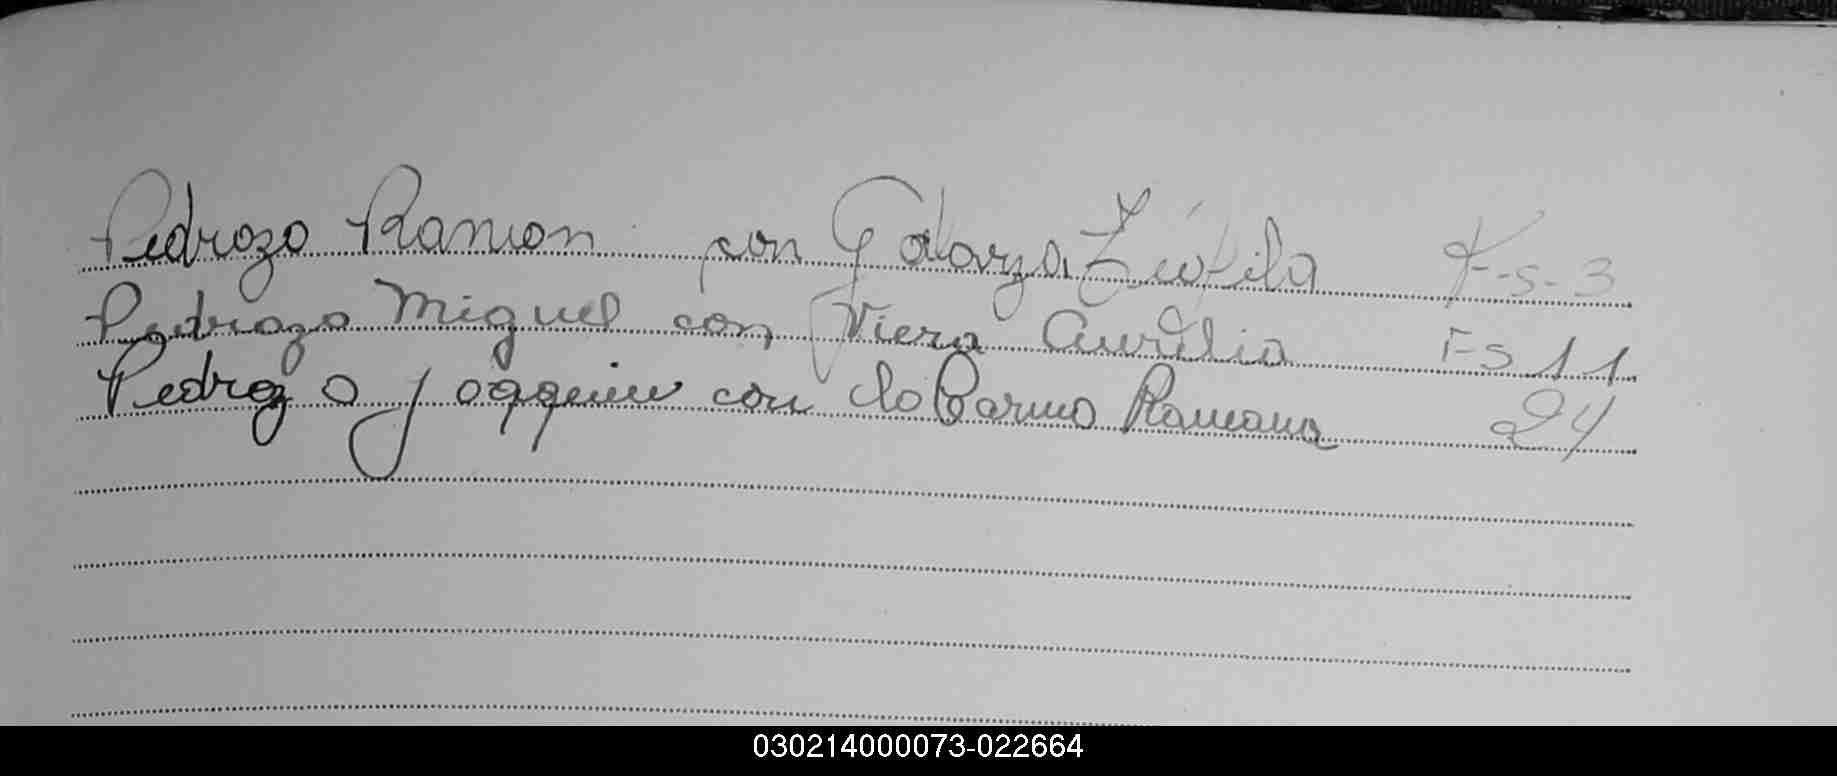 Pedrozo Ramon con Galarza Zéofila Fs-3
Pedrozo Miguel con Viera Aurelia Fs 11
Pedrozo Joaquin con do Carmo Ramona 24
030214000073-022664